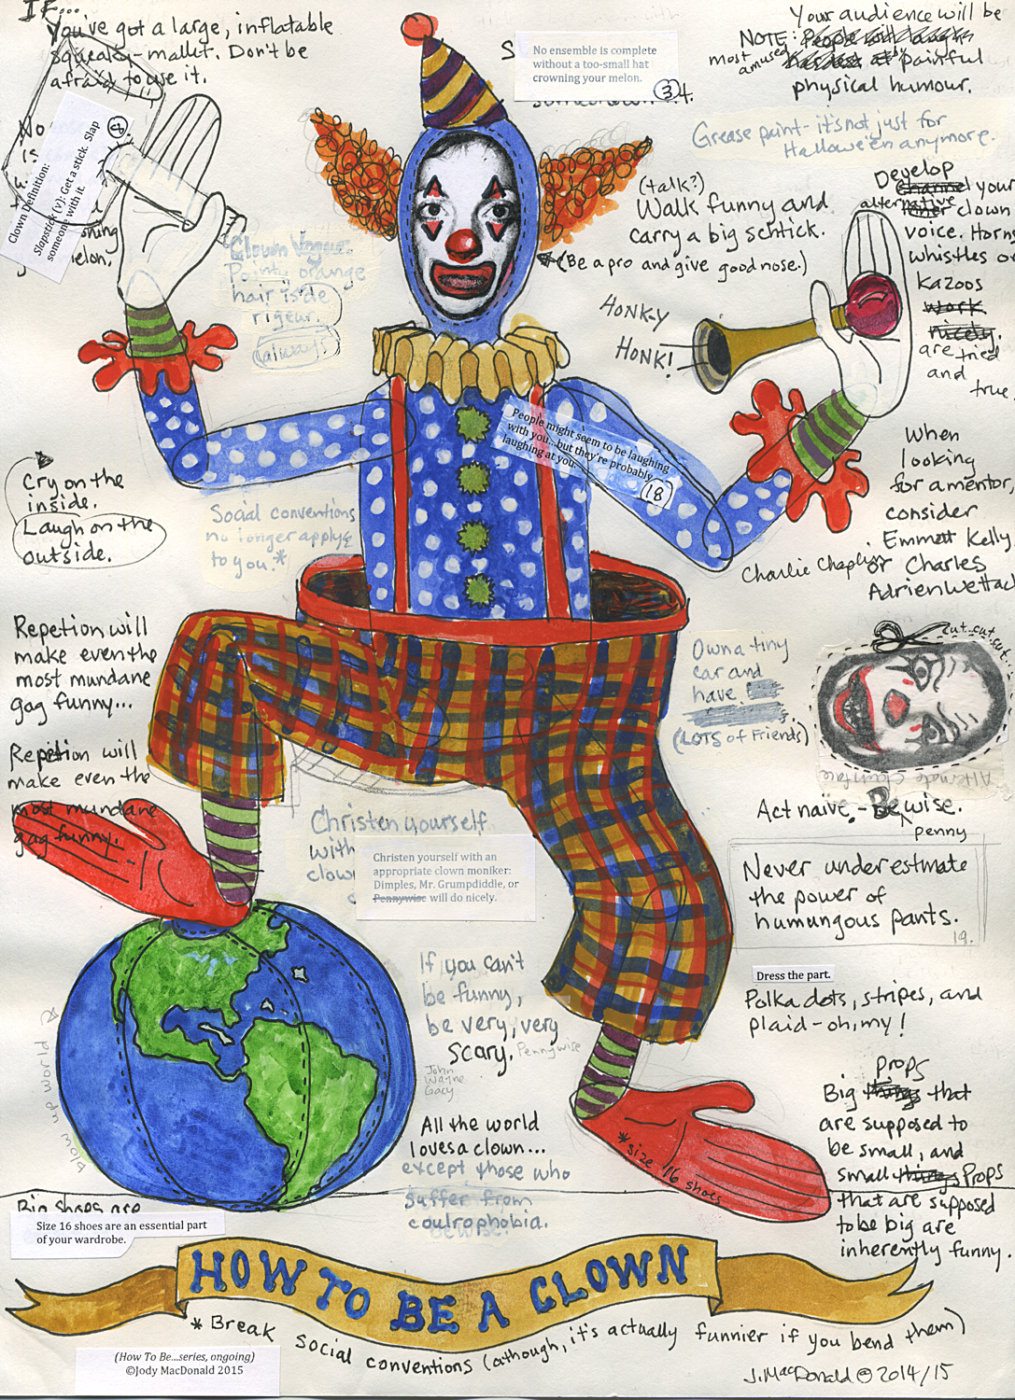 IF...
You've got a large, inflatable
squeaky-mallet. Don't be
afraid to use it.
Clown Definition:
Slapstick (v): Get a stick. Slap
someone with it.
No ensemble is complete
without a too-small hat
crowning your melon.
3
Your audience will be
NOTE: People will laugh
most amused at painful
physical humour.
Grease paint - it's not just for
Hallowe'en anymore.
(talk?)
Walk funny and
carry a big schtick.
(Be a pro and give good nose.)
Develop
Channel your
alternative
inner clown
voice. Horns
whistles or
kazoos
work
nicely.
are tried
and
true.
Clown Vogue:
Pointy orange
hair is de
rigeur.
(always)
HONK-Y
HONK!
People might seem to be laughing
with you...but they're probably
laughing at you.
18
Cry on the
inside.
Laugh on the
outside.
Social conventions
no longer apply
to you.*
When
looking
for a mentor,
consider
Emmett Kelly,
Charlie Chaplin or Charles
Adrien Wettach
Repetion will
make even the
most mundane
gag funny...
Repetion will
make even the
most mundane
gag funny.
Own a tiny
car and
have
(LOTS of Friends)
cut.cut.cut...
Alternate Clown face
Act naive. - Be wise.
penny
Never underestimate
the power of
humungous pants.
19.
Christen yourself
with
clown
Christen yourself with an
appropriate clown moniker:
Dimples, Mr. Grumpdiddle, or
Pennywise will do nicely.
If you can't
be funny,
be very, very
scary. Pennywise
John
Wayne
Gacy
Dress the part.
Polka dots, stripes, and
plaid - oh, my!
blow up world
All the world
loves a clown...
except those who
suffer from
coulrophobia.
*size 16 shoes
Props
Big things that
are supposed to
be small, and
small things Props
that are supposed
to be big are
inherently funny.
Big shoes are
Size 16 shoes are an essential part
of your wardrobe.
HOW TO BE A CLOWN
* Break social conventions (although, it's actually funnier if you bend them)
(How To Be...series, ongoing)
©Jody MacDonald 2015
J. MacDonald © 2014/15